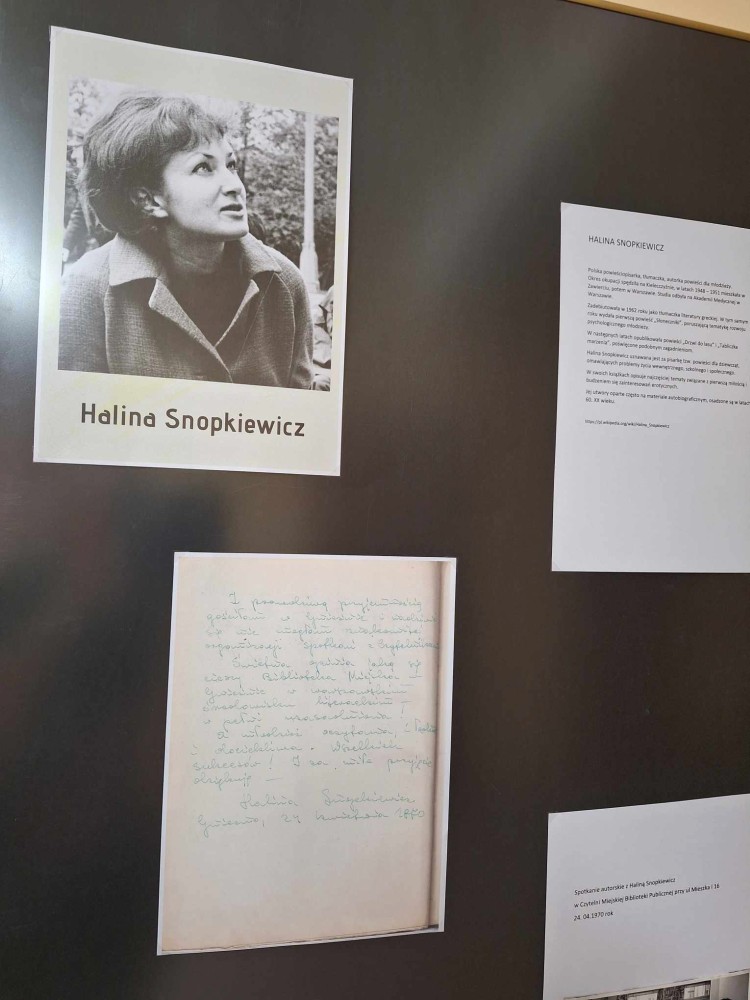 Halina Snopkiewicz
HALINA SNOPKIEWICZ
Polska powieściopisarka, tłumaczka, autorka powieści dla młodzieży.
Okres okupacji spędziła na Kielecczyźnie, w latach 1948 – 1951 mieszkała w
Zawierciu, potem w Warszawie. Studia odbyła na Akademii Medycznej w
Warszawie.
Zadebiutowała w 1962 roku jako tłumaczka literatury greckiej. W tym samym
roku wydała pierwszą powieść „Słoneczniki", poruszającą tematykę rozwoju
psychologicznego młodzieży.
W następnych latach opublikowała powieści „Drzwi do lasu" i „Tabliczka
marzenia", poświęcone podobnym zagadnieniom.
Halina Snopkiewicz uznawana jest za pisarkę tzw. powieści dla dziewcząt,
omawiających problemy życia wewnętrznego, szkolnego i społecznego.
W swoich książkach opisuje najczęściej tematy związane z pierwszą miłością i
budzeniem się zainteresowań erotycznych.
Jej utwory oparte często na materiale autobiograficznym, osadzone są w latach
60. XX wieku.
https://pl.wikipedia.org/wiki/Halina_Snopkiewicz
Z prawdziwą przyjemnością
gościłam w Gnieźnie
organizacji spotkań z Czytelnikami
Świetną opinią
cieszy Biblioteka Miejska
Gnieźnie w warszawskim
środowisku literackim –
w pełni uzasadniona!
A młodzież oczytana,
i dociekliwa. Wielkich
sukcesów! I za miłe przyjęcie
dziękuję –
Halina Snopkiewicz
Gniezno, 24 kwietnia 1970
Spotkanie autorskie z Haliną Snopkiewicz
w Czytelni Miejskiej Biblioteki Publicznej przy ul Mieszka I 16
24. 04.1970 rok